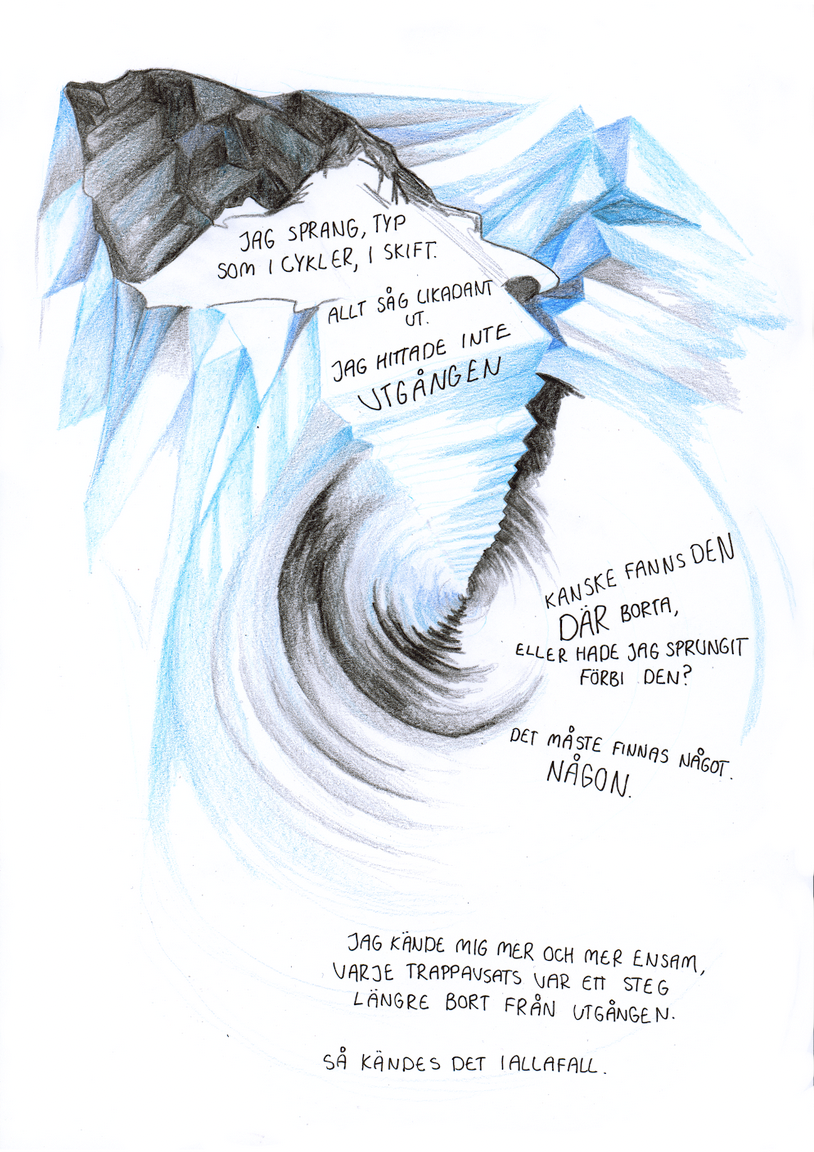 JAG SPRANG, TYP
SOM I CYKLER, I SKIFT.
ALLT SÅG LIKADANT
UT.
JAG HITTADE INTE
UTGÅNGEN
KANSKE FANNS DEN
DÄR BORTA,
ELLER HADE JAG SPRUNGIT
FÖRBI DEN?
DET MÅSTE FINNAS NÅGOT.
NÅGON.
JAG KÄNDE MIG MER OCH MER ENSAM,
VARJE TRAPPAVSATS VAR ETT STEG
LÄNGRE BORT FRÅN UTGÅNGEN.
SÅ KÄNDES DET IALLAFALL.